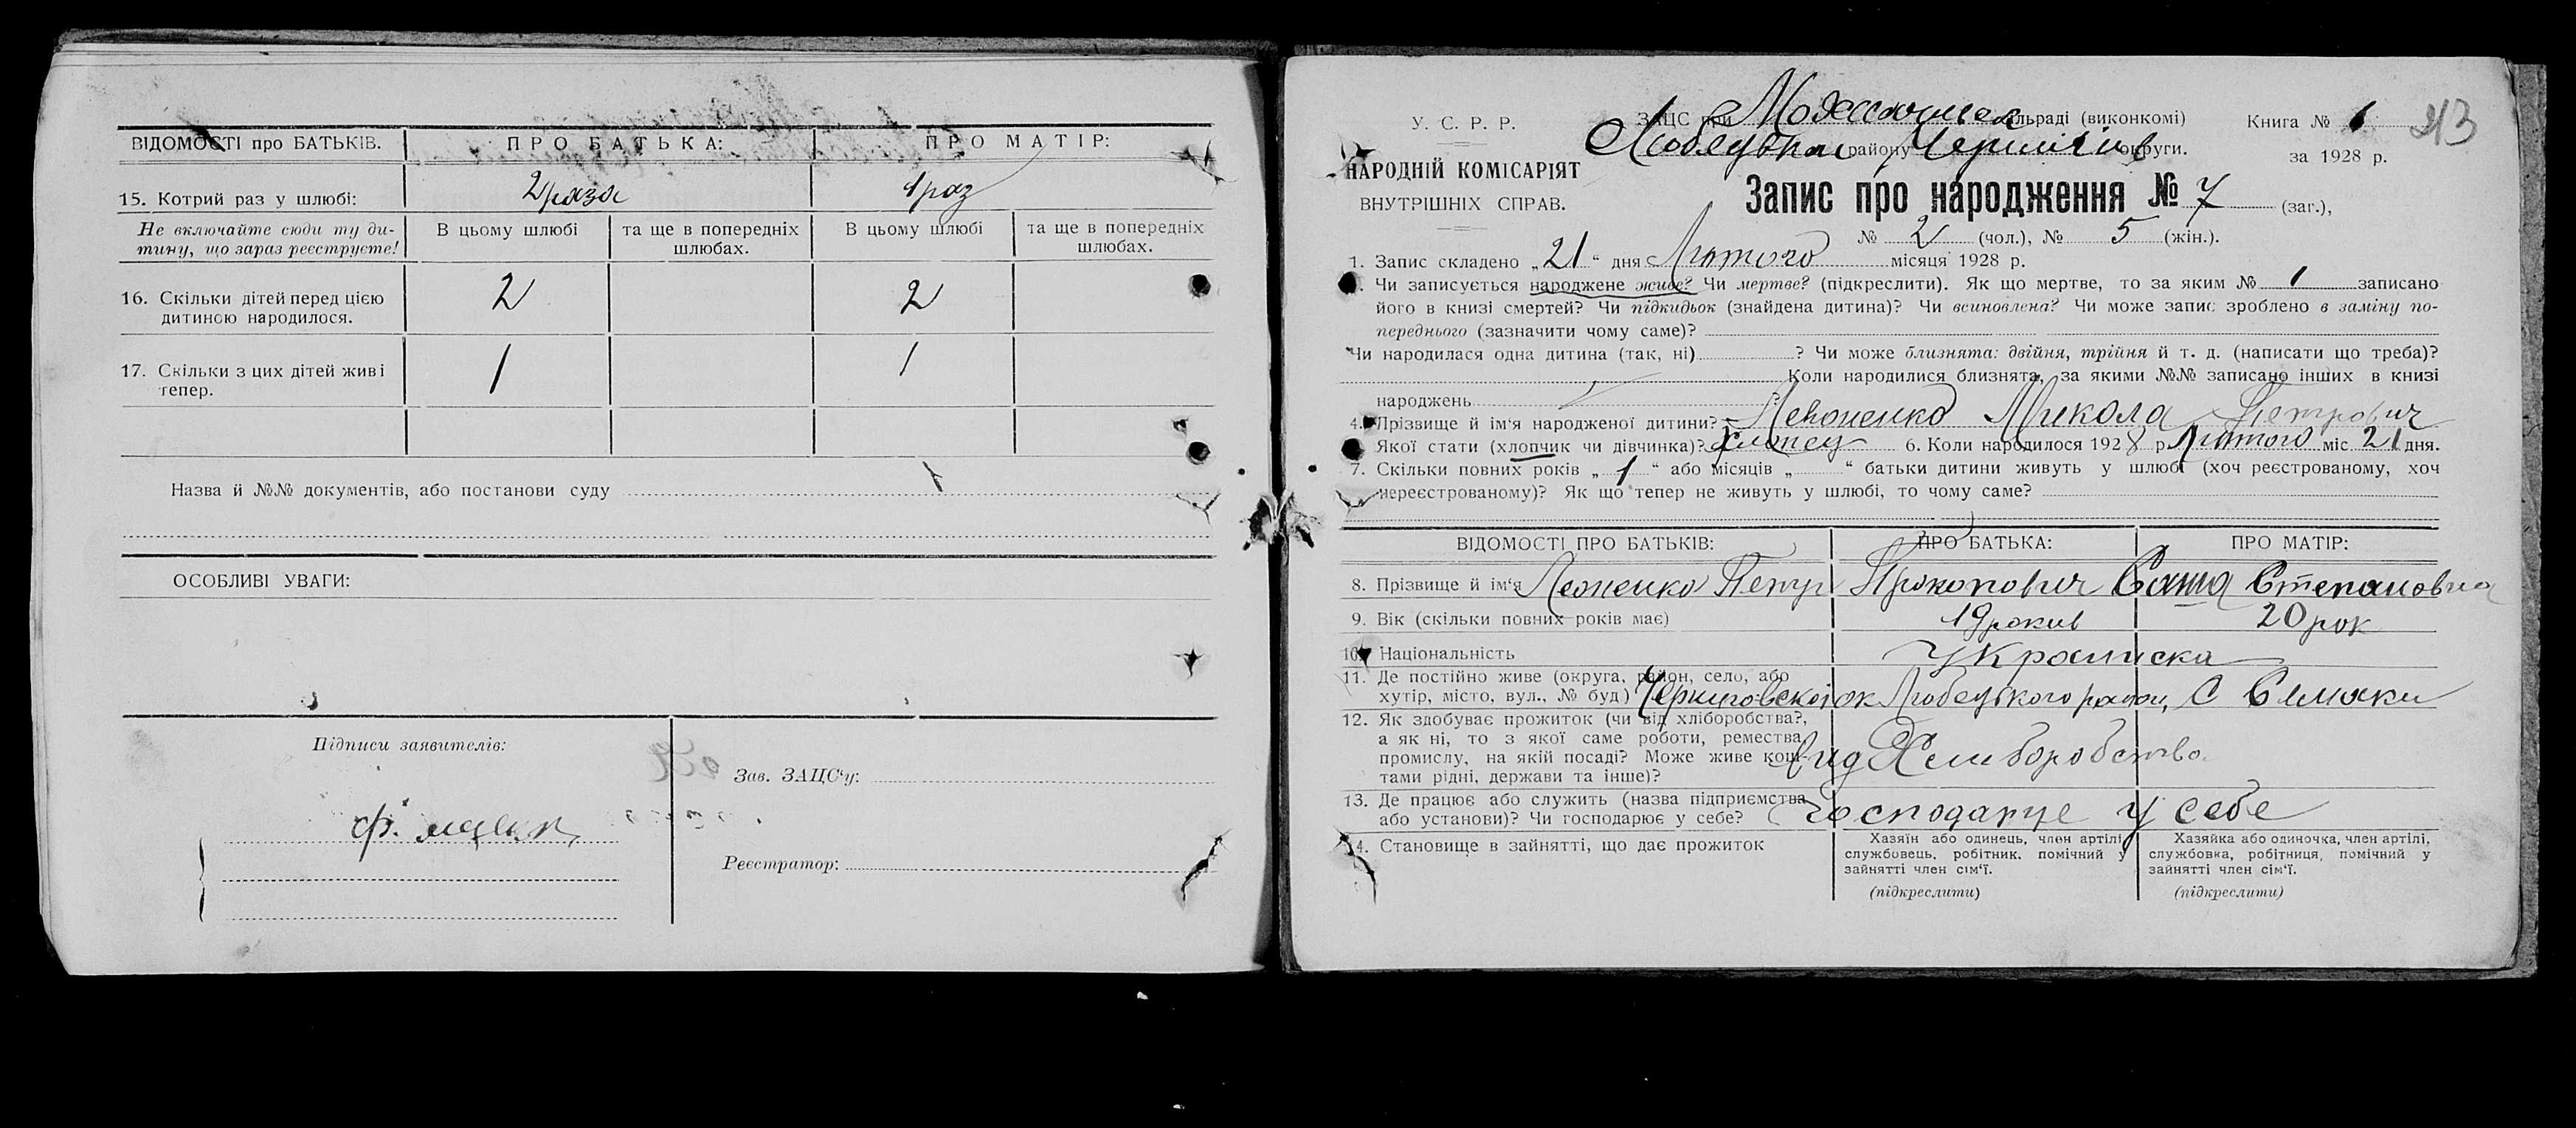 ВІДОМОСТІ про БАТЬКІВ. ПРО БАТЬКА: ПРО МАТІР:
15. Котрий раз у шлюбі: 2 раза 1 раз
Не включайте сюди ту ди-
тину, що зараз реєструєте!
В цьому шлюбі та ще в попередніх шлюбах. В цьому шлюбі та ще в попередніх шлюбах.
16. Скільки дітей перед цією 2 2
дитиною народилося.
17. Скільки з цих дітей живі 1 1
тепер.
Назва й №№ документів, або постанови суду
ОСОБЛИВІ УВАГИ:
Підписи заявителів:
Зав. ЗАЦС'у:
Реєстратор:
У. С. Р. Р.
НАРОДНІЙ КОМІСАРІЯТ
ВНУТРІШНІХ СПРАВ.
ЗАЦС при сільраді (виконкомі)
району Чернигів округи.
Книга № 1
213
за 1928 р.
Запис про народження № 7 (заг.),
№ 2 (чол.), № 5 (жін.).
1. Запис складено „21“ дня Лютого місяця 1928 р.
Чи записується народжене живе? Чи мертве? (підкреслити). Як що мертве, то за яким № записано
його в книзі смертей? Чи підкидьок (знайдена дитина)? Чи всиновлена? Чи може запис зроблено в заміну по-
переднього (зазначити чому саме)?
Чи народилася одна дитина (так, ні) ? Чи може близнята: двійня, трійня й т. д. (написати що треба)?
Коли народилися близнята, за якими №№ записано інших в книзі
народжень ?
4. Прізвище й ім'я народженої дитини? Микола Петрович
Якої стати (хлопчик чи дівчинка)? хлопец 6. Коли народилося 1928 р. Лютого міс. 21 дня.
7. Скільки повних років „1“ або місяців „ “ батьки дитини живуть у шлюбі (хоч реєстрованому, хоч
нереєстрованому)? Як що тепер не живуть у шлюбі, то чому саме?
ВІДОМОСТІ ПРО БАТЬКІВ: ПРО БАТЬКА: ПРО МАТІР:
8. Прізвище й ім'я Леоненко Петр Прокопович Степановна
9. Вік (скільки повних років має) 19 рокив 20 рок
10. Національність Украинска
11. Де постійно живе (округа, район, село, або
хутір, місто, вул., № буд) Черниговской ок Любецького район, С Семаки
12. Як здобуває прожиток (чи від хліборобства?,
а як ні, то з якої саме роботи, ремества,
промислу, на якій посаді? Може живе кош-
тами рідні, держави та інше)?
вид Хлиборобство
13. Де працює або служить (назва підприємства
або установи)? Чи господарює у себе? Господарце у себе
14. Становище в зайнятті, що дає прожиток
Хазяїн або одинець, член артілі,
службовець, робітник, помічний у
зайнятті член сім'ї.
(підкреслити)
Хазяйка або одиночка, член артілі,
службовка, робітниця, помічний у
зайнятті член сім'ї.
(підкреслити)